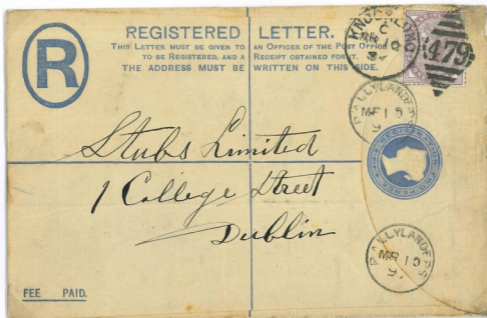 R
REGISTERED LETTER.
THIS LETTER MUST BE GIVEN TO AN OFFICER OF THE POST OFFICE
TO BE REGISTERED, AND A RECEIPT OBTAINED FOR IT.
THE ADDRESS MUST BE WRITTEN ON THIS SIDE.
KNOCKLONG
C
MR 10
479
BALLYLANDERS
MR 10
9
Stubs Limited
1 College Street
Dublin
BALLYLANDERS
MR 10
9
FEE PAID.